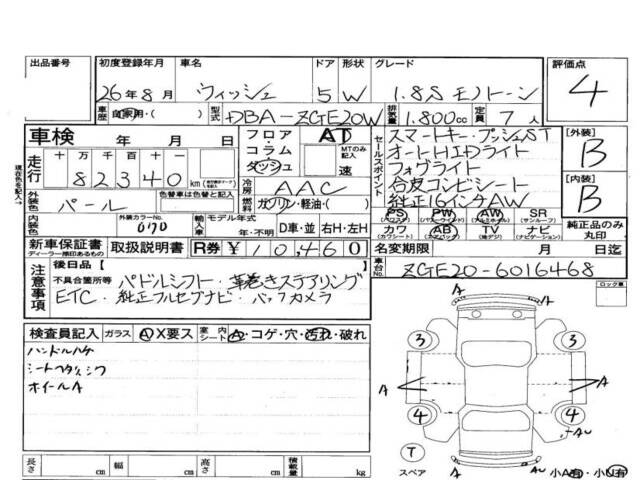 出品番号 初度登録年月 車名 ドア 形状 グレード 評価点
26年8月 ウィッシュ 5 W 1.8S モノトーン 4
車歴 自家用・( ) 型式 DBA-ZGE20W 排気量 1.800cc 定員 7人
車検 年 月 日
フロア AT
コラム MTのみ記入
ダッシュ 速
セールスポイント
スマートキー・プッシュST
オートHIDライト
フォグライト
合皮コンビシート
純正16インチAW
[外装] B
[内装] B
現在色を記入→
走行 十 万 千 百 十 一
82340 km
冷房 AAC
外装色 パール 色替車は色替と記入
燃料 ガソリン・軽油・( )
PS (パワステ) PW (パワーウインド) AW (アルミホイル) SR (サンルーフ)
カワ (カワシート) AB (エアバッグ) TV (テレビ) ナビ (ナビゲーション)
純正品のみ丸印
内装色 外装カラーNo. 070 輸入車 モデル年式 年・不明 D車・並 右H・左H
新車保証書 ディーラー捺印あるもの 取扱説明書 R券 ¥10,460
名変期限 月 日迄
車台No. ZGE20-6016468
注意事項 後日品( )
不具合箇所等 パドルシフト・革巻きステアリング
ETC・純正フルセグナビ・バックカメラ
ロック車
検査員記入 ガラス A X要ス 室内シート A・コゲ・穴・汚れ・破れ
ハンドルハゲ
シートヘタリ,シワ
ホイールA
A A
3 3
A A A
4 4
A AU
T
スペア A AU 小A有・小U有
長さ cm 幅 cm 高さ cm 積載量 kg